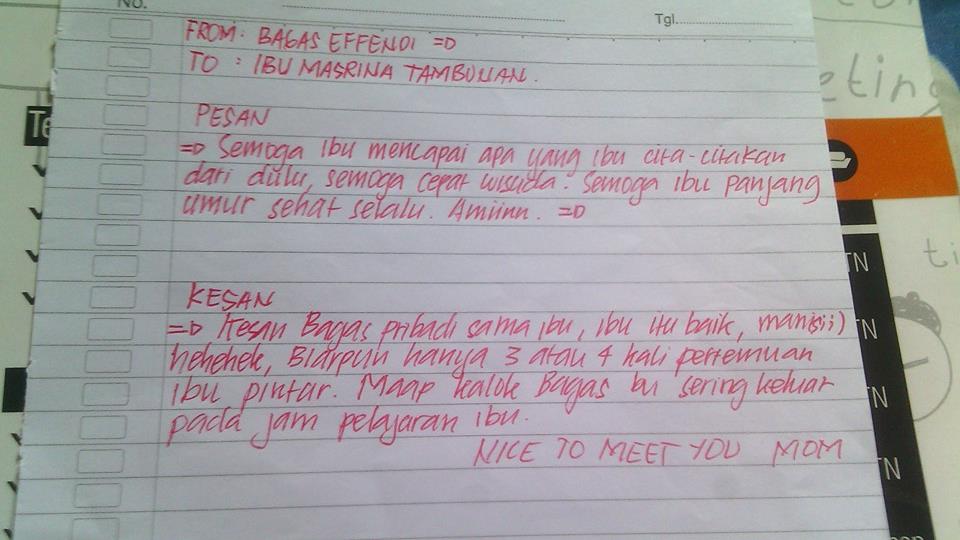 No.
Tgl.
FROM: BAGAS EFFENDI =D
TO : IBU MASRINA TAMBUNAN.
PESAN
=D Semoga ibu mencapai apa yang ibu cita-citakan
dari dulu, semoga cepat wisuda. Semoga ibu panjang
umur sehat selalu. Amiinn. =D
KESAN
=D Kesan Bagas pribadi sama ibu, ibu itu baik, manis;;)
hehehek, Biarpun hanya 3 atau 4 kali pertemuan
ibu pintar. Maap kalok Bagas bu sering keluar
pada jam pelajaran ibu.
NICE TO MEET YOU MOM
Te
eting
ti
TN
TN
TN
TN